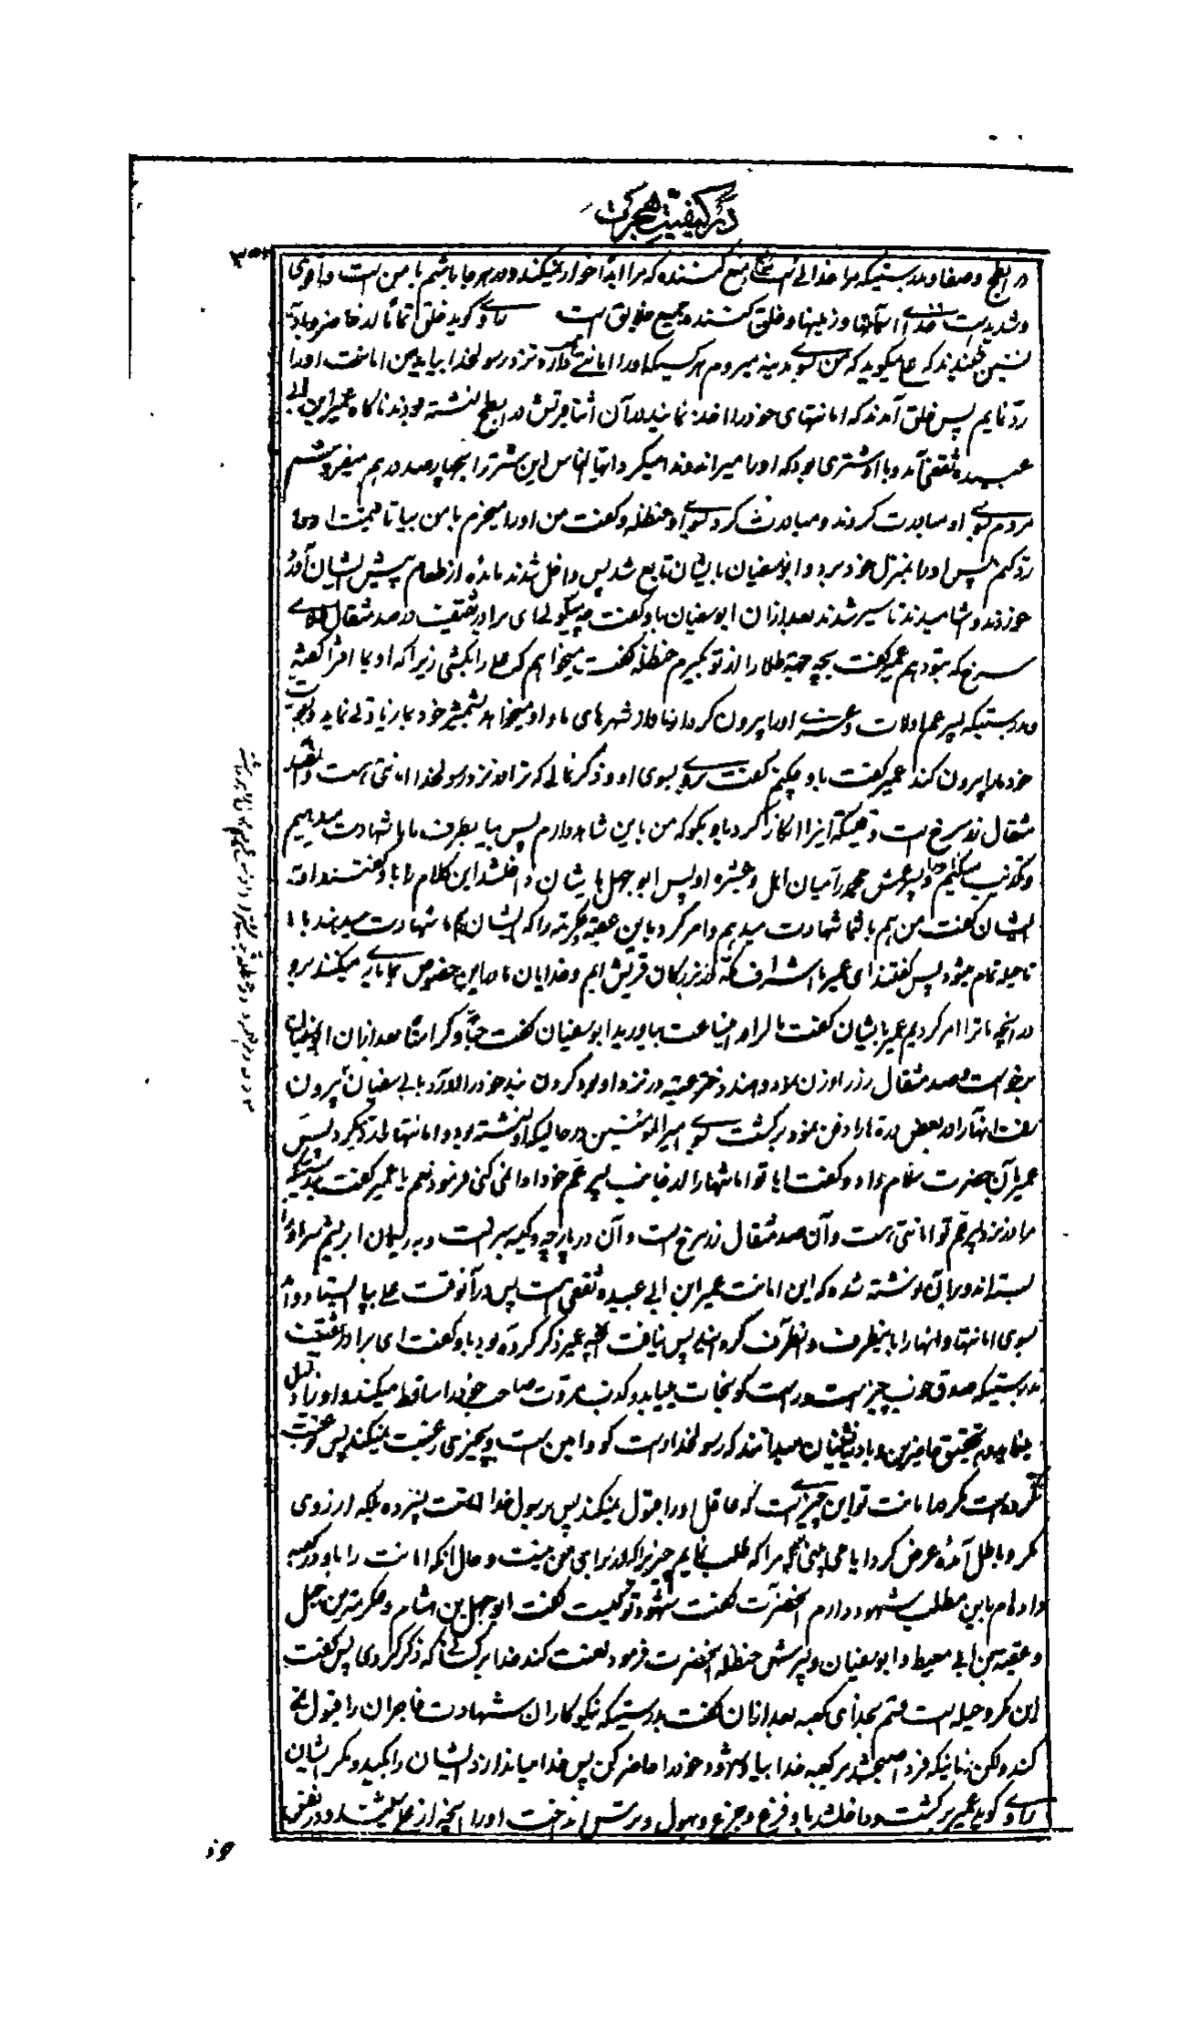 در کیفیت هجرت
در ابطح و صفا و بدرستیکه مرا خدائی است منع کننده که مرا ابدا خوار نمیکند و در هر جا باشم با من است و او قوی
و شدید است خدای آسمانها و زمینها و خلق کننده جمیع خلایق است راوی گوید خلق تماما از حاضر و بادیه
نشین شنیدند که علی میگوید که من بسوی مدینه میروم هر کسیکه او را امانتی باشد نزد رسولخدا بیاید من امانت او را
رد نمایم پس خلق آمدند که امانتهای خود را اخذ نمایند در آن اثنا قریش در ابطح نشسته بودند ناگاه عمیر ابن ابی
عبیده ثقفی آمد و با او شتری بود که او را میراند و ندا میکرد ایها الناس این شتر را بچهار صد درهم میفروشم
مردم بسوی او مبادرت کردند و مبادرت کرد بسوی او حنظله و گفت من او را میخرم با من بیا تا قیمت او را
رد کنم پس او را بمنزل خود برد و ابو سفیان بایشان تابع شد پس داخل شدند مائده از طعام پیش ایشان آورد
خوردند و آشامیدند تا سیر شدند بعد ازان ابو سفیان باو گفت چه میگوئی ای برادر ثقیف در صد مثقال طلای
سرخ که بتو دهم عمیر گفت بچه جهة طلا را از تو بگیرم حنظله گفت میخواهم که علی را بکشی زیرا که او بما افترا گفته
و بدرستیکه پسر عم او لات و عزی او را بیرون کردند از شهرهای ما و او میخواهد بشمشیر خود بما زیادتی نماید
خود ما را بیرون کند عمیر گفت باو چکنم گفت برو بسوی او و ذکر نمائی که ترا نزد رسولخدا امانتی است
مثقال زر سرخ است وقتیکه آنرا انکار کرد باو بگو که من باین شاهد دارم پس بیا بطرف ما ما شهادت میدهیم
و تکذیب میکنیم او و پسر عمش محمد را میان اهل و عشیره او پس ابو جهل بایشان داخل شد این کلام را باو گفتند او به
ایشان گفت من هم با شما شهادت میدهم و امر کرد باین عقبه و عکرمه را که ایشان هم شهادت میدهند با ما
تا حیله تمام میشود پس گفتند ای عمیر ما اشراف مکه و از بزرگان قریش ایم و خدایان ما در این خصوص بما یاری میکنند برو
در آنچه ما ترا امر کردیم عمیر بایشان گفت مال را در این ساعت بیاورید ابو سفیان گفت حبا و کرامتا بعد ازان ابو سفیان
برخواست و صد مثقال زر را وزن نمود و هند دختر عتبه در نزد او بود گردن بند خود را در آورد بابی سفیان بیرون
رفت آنها را در بعض دره ها را دفن نمود برگشت بسوی امیر المؤمنین در حالیکه او نشسته بود و امانتها را رد میکرد پس
عمیر بآن حضرت سلام داد و گفت ایا تو امانتها را از جانب پسر عم خود ادا نمی کنی فرمود نعم یا عمیر گفت بدرستیکه
مرا در نزد پسر عم تو امانتی است و آن صد مثقال زر سرخ است و آن در پارچه و کیسه سبز است و به ریسمان ابریشم سر او را
بسته اند و بر آن نوشته شده که این امانت عمیر ابن ابی عبیده ثقفی است پس در آنوقت علی بپا ایستاد و آمد
بسوی امانتها و آنها را باینطرف و آنطرف گردانید پس نیافت آنچه عمیر ذکر کرده بود باو گفت ای برادر ثقیف
بدرستیکه صدق خوب چیزیست و راست گو نجات مییابد و کذب مروت صاحب خود را ساقط میکند و او را ذلیل
مینماید و بتحقیق حاضرین و بادیه نشینان میدانند که رسولخدا راست گو و امین است و بچیزی رغبت نمیکند پس
نکرده است مگر در امانت تو این چیزیست که عاقل او را قبول نمیکند پس برسول خدا امانت نسپرده بلکه آرزوی
مکر و باطل آمده عرض کرد یا علی چه مرا که طلب نمایم چیزیرا که از برای من نیست و حال آنکه امانت را باو در کعبه
داده ام باین مطلب شهود دارم آنحضرت گفت شهود تو کیست گفت ابو جهل بن هشام و عکرمة بن ابی جهل
و عقبة بن ابی معیط و ابو سفیان و پسرش حنظله آنحضرت فرمود لعنت کند خدا بر کسانی که ذکر کردی پس گفت
این مکر و حیله است قسم بخدای کعبه بعد ازان گفت بدرستیکه نیکوکاران شهادت فاجران را قبول نمی
کند ولکن زمانیکه فردا صبح شد بر کعبه خدا بیا و شهود خود را حاضر کن پس خدا میاندازد ایشان را بکید و مکر ایشان
راوی گوید عمیر برگشت و داخل شد باو فزع و جزع و هول و ترس انداخت او را آنچه از علی شنید و در نفس
خو